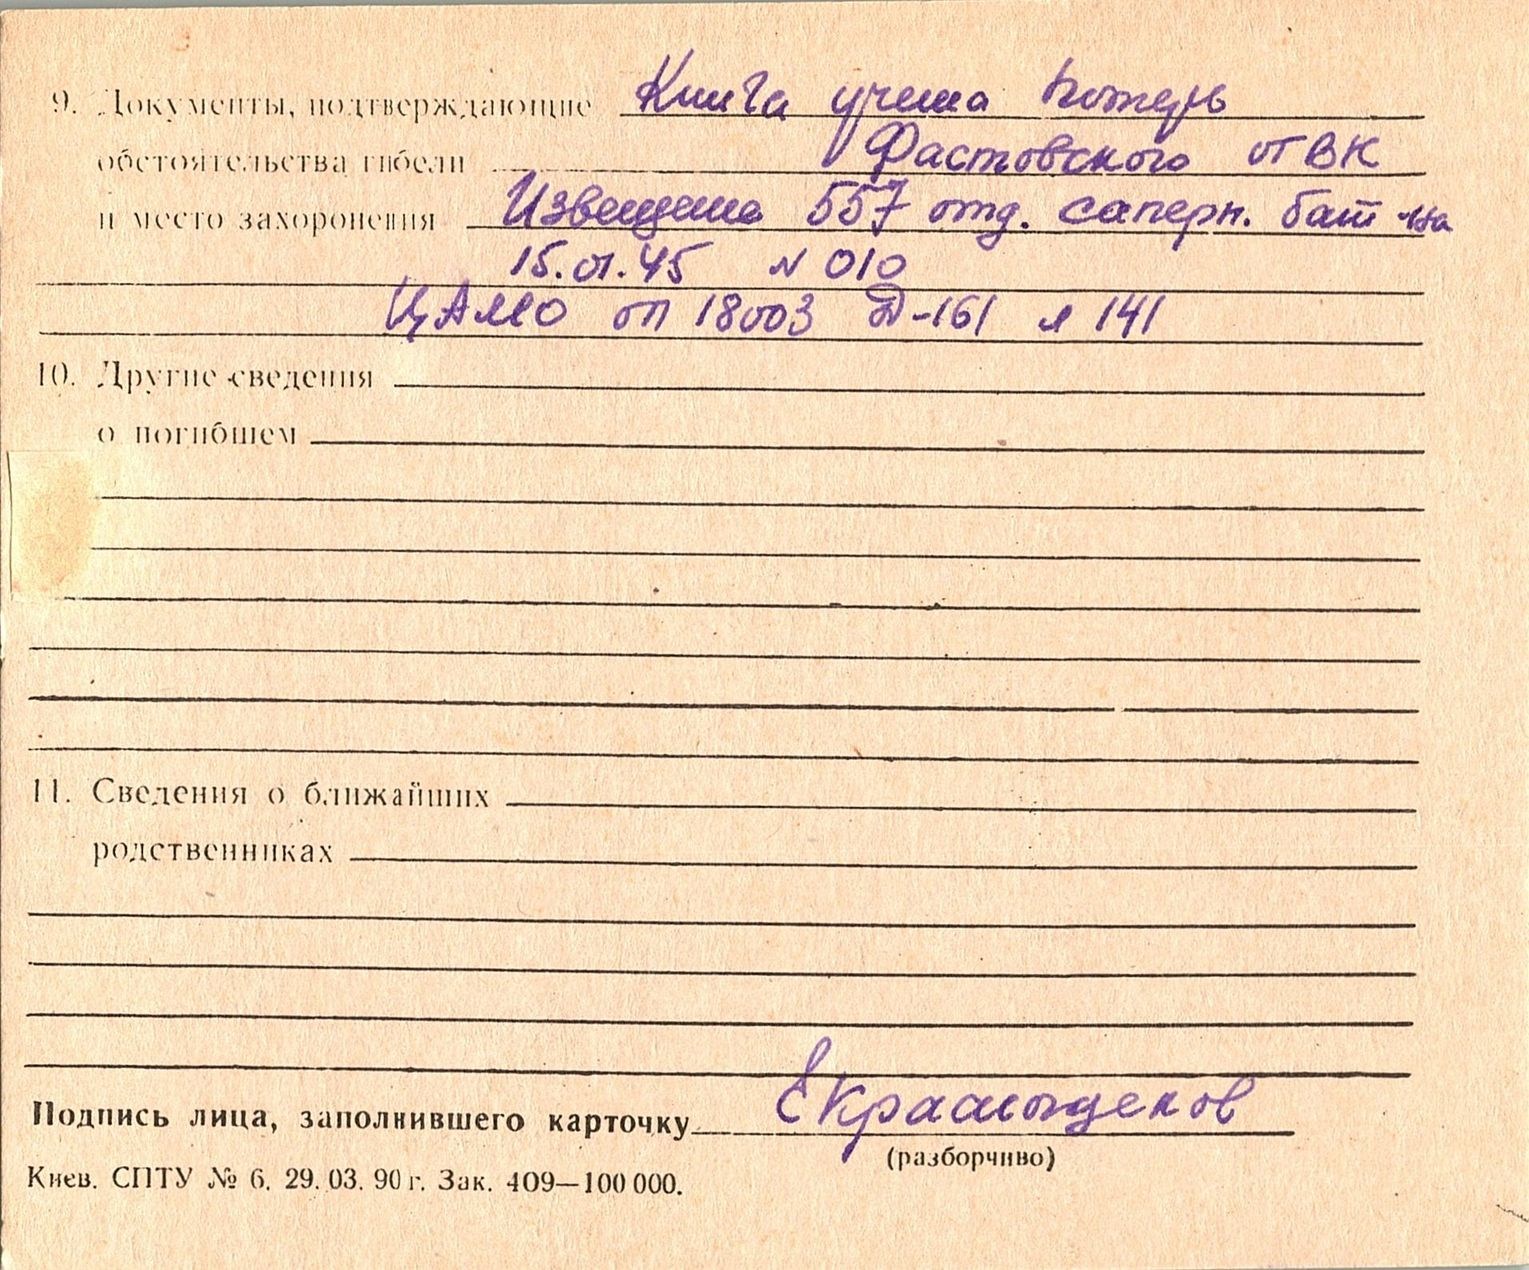 9. Документы, подтверждающие Книга учета потерь
обстоятельства гибели Фастовского ОГВК
и место захоронения Извещение 557 отд. саперн. бат-на
15.01.45 N 010
ЦАМО оп 18003 Д-161 л 141
10. Другие сведения
о погибшем
11. Сведения о ближайших
родственниках
Подпись лица, заполнившего карточку
(разборчиво)
Киев. СПТУ № 6. 29. 03. 90 г. Зак. 409—100 000.